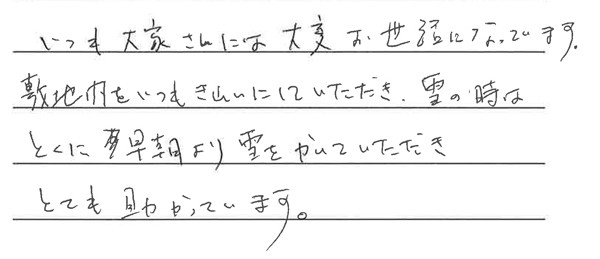 いつも大家さんには大変お世話になっています。
敷地内をいつもきれいにしていただき、雪の時は
とくに早朝より雪をかいていただき
とても助かっています。